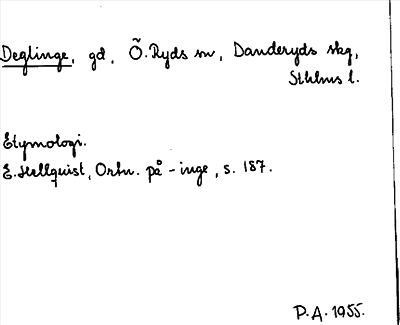 Deglinge, gd, Ö. Ryds sn, Danderyds skg,
Sthlms l.
Etymologi.
E. Hellquist, Ortn. på -inge, s. 187.
P.A. 1955.